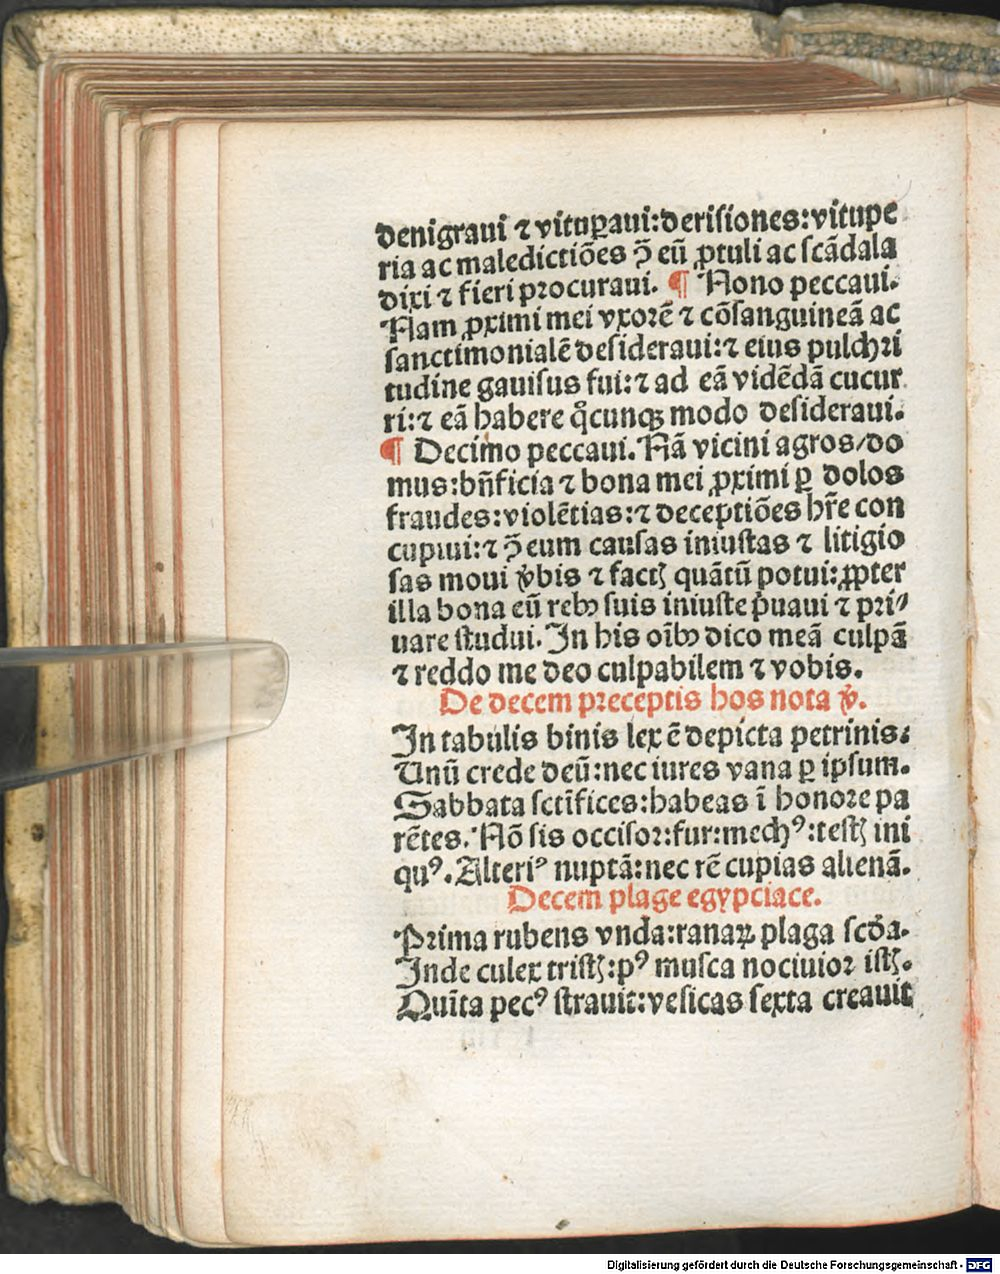 denigraui ⁊ vituꝑaui:derisiones:vitupe
ria ac maledictiões ꝯ̃ eũ ꝓtuli ac scãdala
dixi ⁊ fieri procuraui. ¶ Nono peccaui.
Nam ꝓximi mei vxorẽ ⁊ cõsanguineã ac
sanctimonialẽ desideraui:⁊ eius pulchri
tudine gauisus fui:⁊ ad eã vidẽdã cucur
ri:⁊ eã habere qͦcunqꝫ modo desideraui.
¶ Decimo peccaui. Nã vicini agros/do
mus:bñficia ⁊ bona mei ꝓximi ꝑ dolos
fraudes:violẽtias:⁊ deceptiões hr̃e con
cupiui:⁊ ꝯ̃ eum causas iniustas ⁊ litigio
sas moui v̾bis ⁊ factꝭ quãtũ potui:ꝓpter
illa bona eũ rebꝰ suis iniuste p̃uaui ⁊ pri⸗
uare studui. In his oĩbꝰ dico meã culpã
⁊ reddo me deo culpabilem ⁊ vobis.
De decem preceptis hos nota v̾.
In tabulis binis lex ẽ depicta petrinis:
Unũ crede deũ:nec iures vana ꝑ ipsum.
Sabbata sctĩfices:habeas ĩ honore pa
rẽtes. Nõ sis occisor:fur:mechꝰ:testꝭ ini
quꝰ. Alteriꝰ nuptã:nec rẽ cupias alienã.
Decem plage egypciace.
Prima rubens vnda:ranaꝝ plaga scḋa.
Inde culex tristꝭ:pꝰ musca nociuior istꝭ.
Quĩta pecꝰ strauit:vesicas sexta creauit
Digitalisierung gefördert durch die Deutsche Forschungsgemeinschaft - DFG